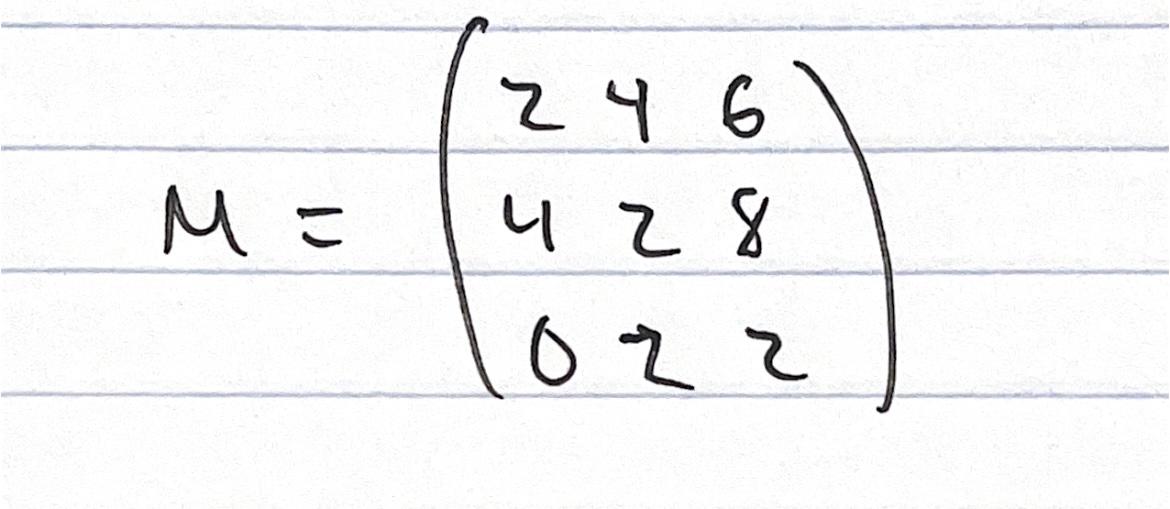 M = ( 2 4 6
4 2 8
0 2 2 )